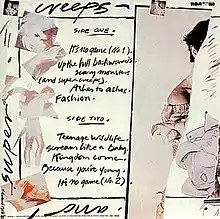 creeps
SIDE ONE.
It's no game (No. 1).
Up the hill backwards.
scary monsters
(and super creeps).
Ashes to ashes.
Fashion.
SIDE TWO.
Teenage Wildlife.
scream like a Baby.
Kingdom come.
Because you're young.
It's no game (No. 2)
super